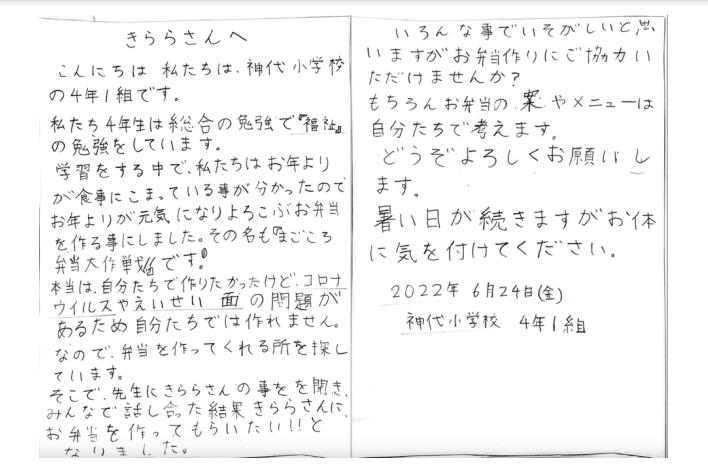 きららさんへ
こんにちは 私たちは、神代小学校
の4年1組です。
私たち4年生は総合の勉強で『福祉』
の勉強をしています。
学習をする中で、私たちはお年より
が食事にこまっている事が分かったので
お年よりが元気になりよろこぶお弁当
を作る事にしました。その名も『まごころ
弁当大作戦』です。
本当は、自分たちで作りたかったけど、コロナ
ウイルスやえいせい面の問題が
あるため自分たちでは作れません。
なので、弁当を作ってくれる所を探し
ています。
そこで、先生にきららさんの事をを聞き、
みんなで話し合った結果きららさんに、
お弁当を作ってもらいたい!!と
なりました。
いろんな事でいそがしいと思
いますがお弁当作りにご協力い
ただけませんか?
もちろんお弁当の案やメニューは
自分たちで考えます。
どうぞよろしくお願いし
ます。
暑い日が続きますがお体
に気を付けてください。
2022年 6月24日(金)
神代小学校 4年1組